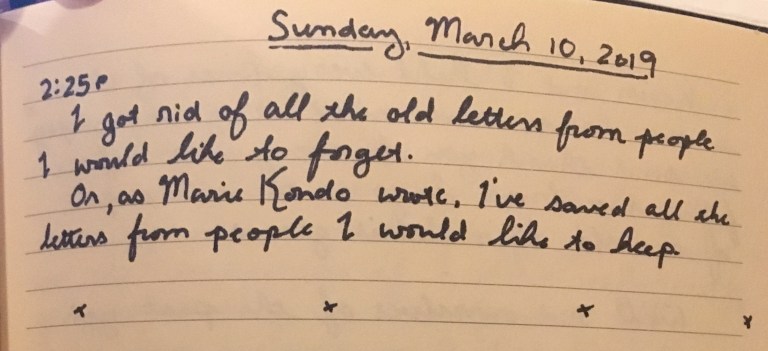 Sunday, March 10, 2019
2:25p
I got rid of all the old letters from people
I would like to forget.
Or, as Marie Kondo wrote, I've saved all the
letters from people I would like to keep
x x x x